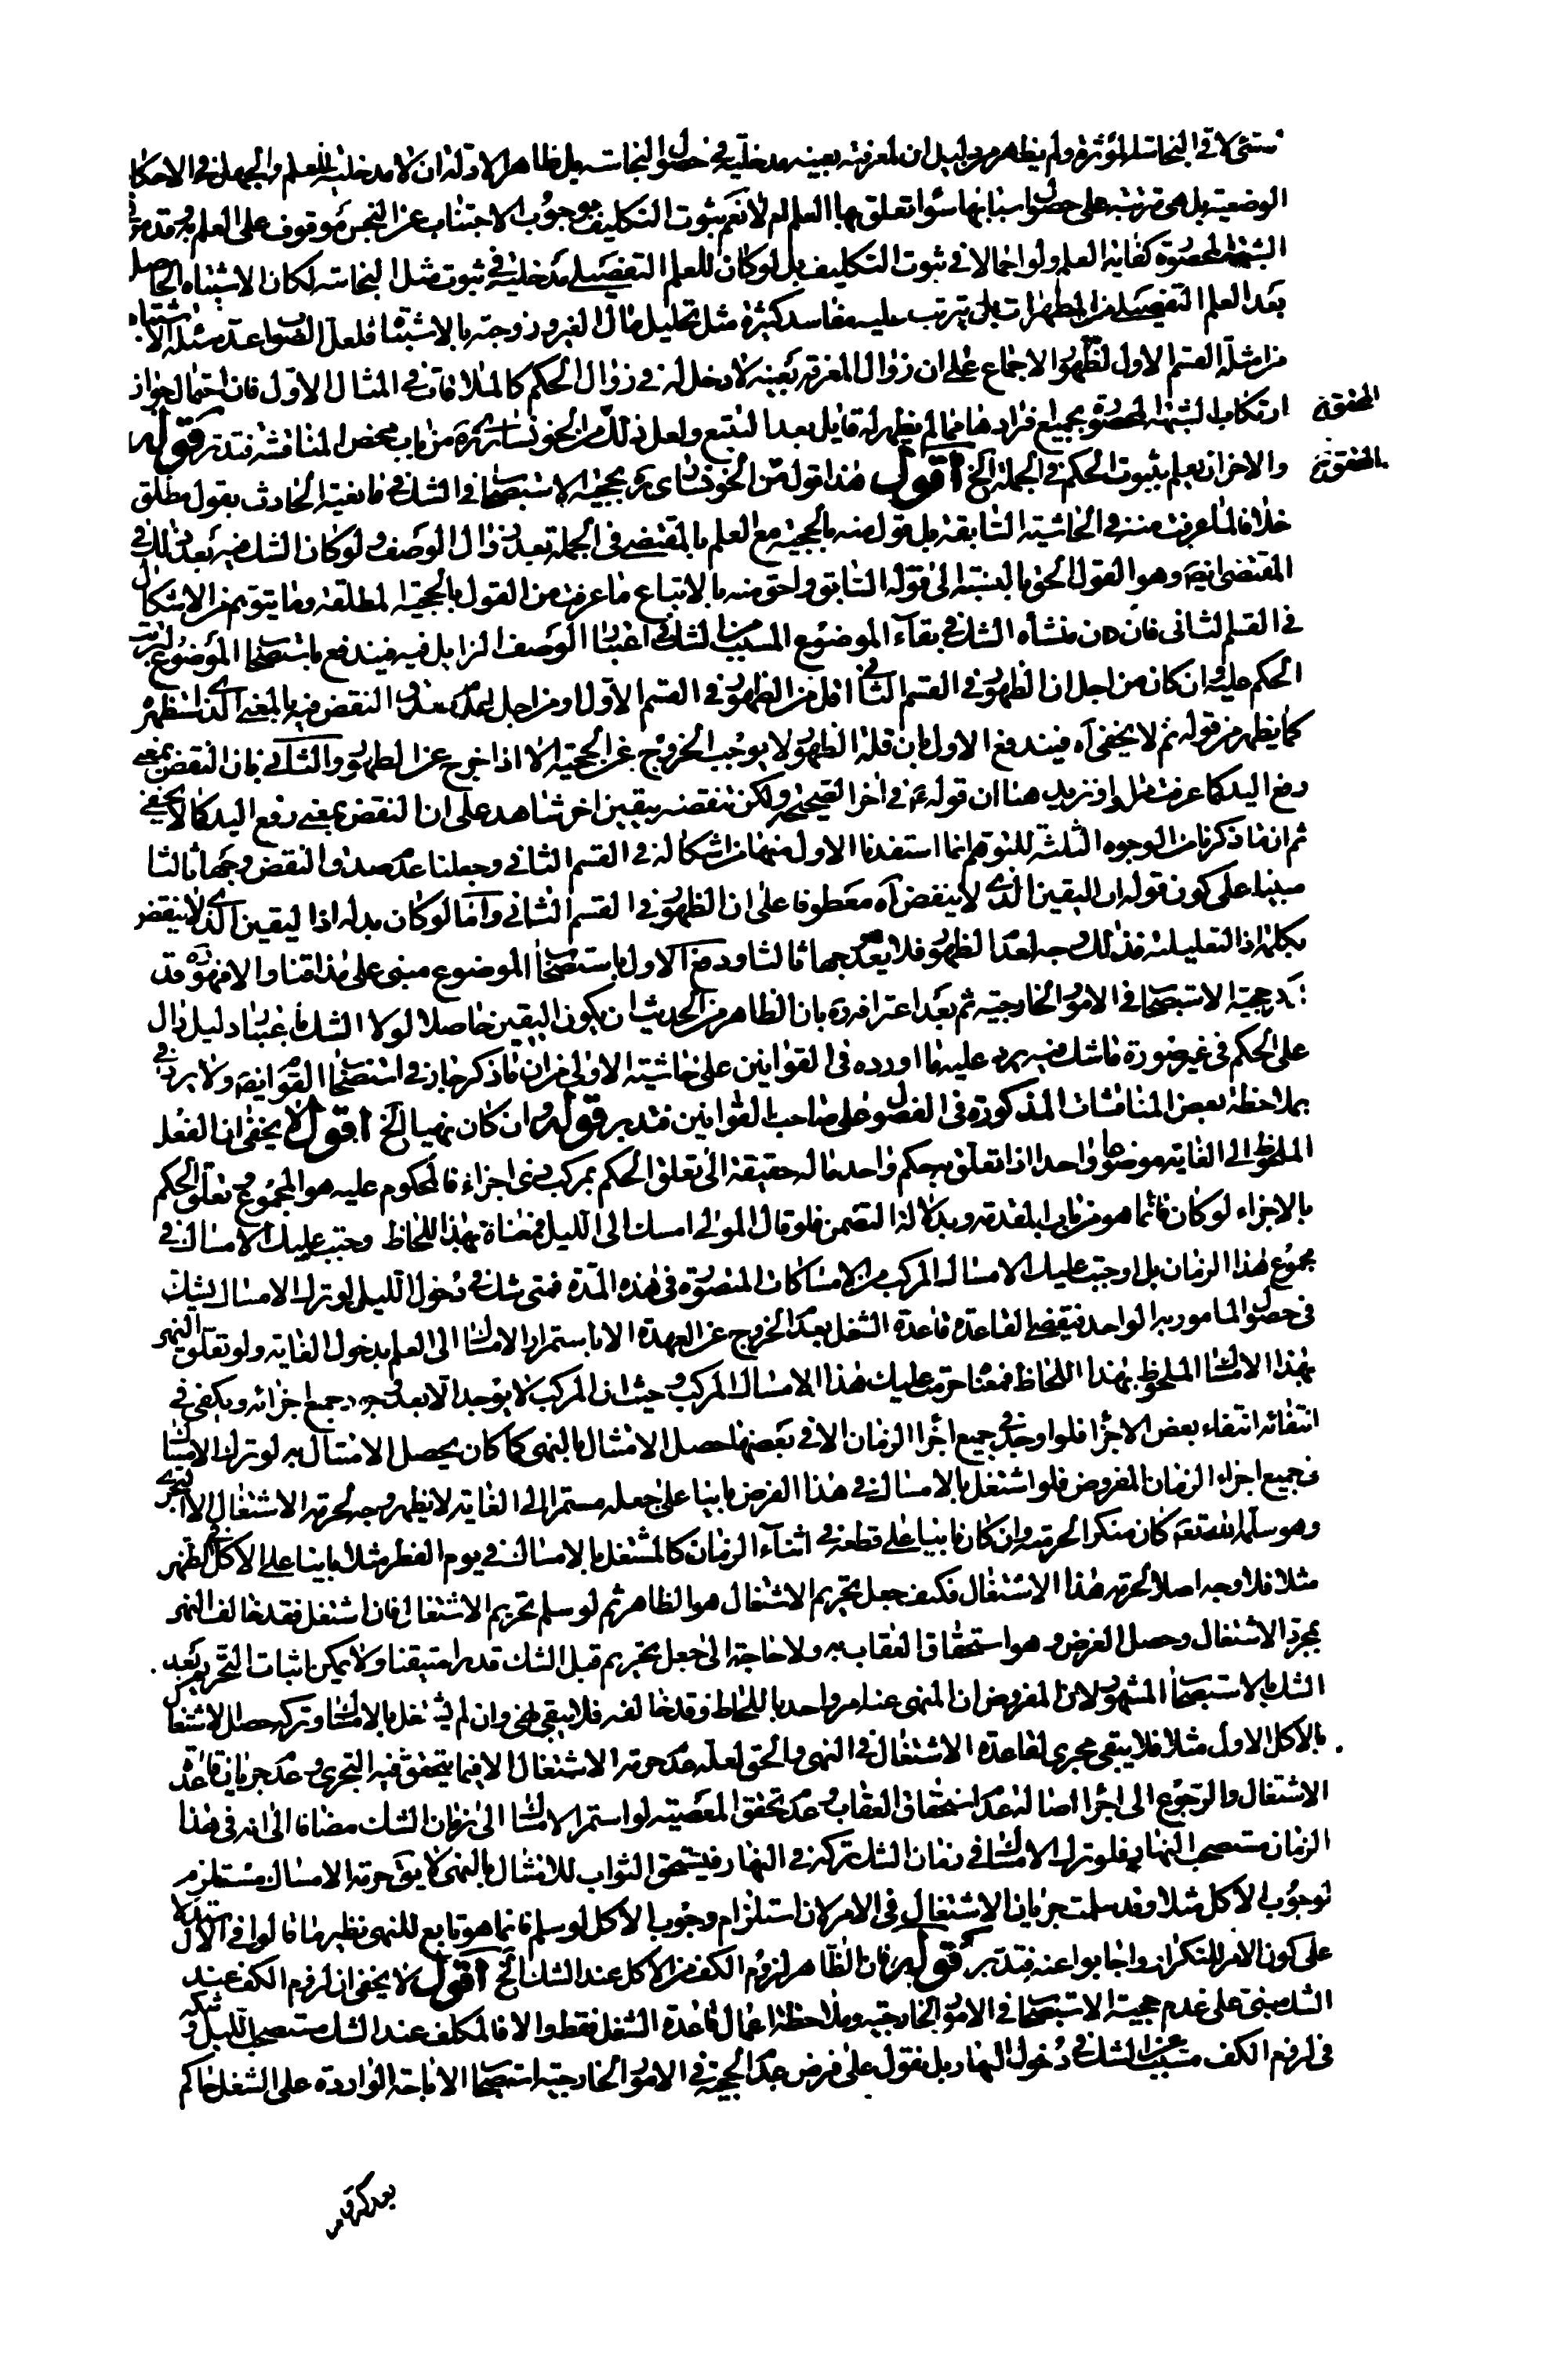 النجاسة المؤثرة ولم يظهر من دليل ان لمعرفته بعينه مدخلية في حصول النجاسة بل ظاهر الادلة ان لا مدخلية للعلم والجهل في الاحكام
الوضعية بل هي مترتبة على حصول اسبابها سواء تعلق بها العلم ام لا نعم ثبوت التكليف بوجوب الاجتناب عن النجس موقوف على العلم به وقد مر في
الشبهة المحصورة كفاية العلم ولو اجمالا في ثبوت التكليف بل لو كان للعلم التفصيلي مدخلية في ثبوت مثل النجاسة لكان الاشتباه الحاصل
بعد العلم التفصيلي من المطهرات بل يترتب عليه مفاسد كثيرة مثل تحليل مال الغير وزوجته بالاشتباه فلعل الصواب عد مسئلة الاشتباه
من امثلة القسم الاول لظهور الاجماع على ان زوال المعرفة بعينه لا دخل له في زوال الحكم كالملاقات في المثال الاول فان احتمال جواز
ارتكاب الشبهة المحصورة بجميع افرادها مما لم يظهر له قايل بعد التتبع ولعل ذلك من الخونساري ره من باب محض المناقشة فتدبر قوله
المحقق
والاخر ان يعلم بثبوت الحكم في الجملة الخ اقول هذا قول من الخونساري ره بحجية الاستصحاب في الشك في مانعية الحادث بقول مطلق
المحقق
خلافا لما عرفت منه في الحاشية السابقة بل قول منه بالحجية مع العلم بالمقتضي في الجملة بعد زوال الوصف ولو كان الشك فيه بعد ذلك في
المقتضى ايضا وهو القول الحق بالنسبة الى قوله السابق واحق منه بالاتباع ما عرفت من القول بالحجية المطلقة وما يتوهم من الاشكال
في القسم الثاني فان كان منشأه الشك في بقاء الموضوع المسبب من الشك في اعتبار الوصف الزايل فيه فيندفع باستصحاب الموضوع
الحكم عليه وان كان من اجل ان الظهور في القسم الثاني اقل من الظهور في القسم الاول او من اجل عدم صدق النقض فيه بالمعنى الذي استظهره
كما يظهر من قوله ثم لا يخفى اه فيندفع الاول بان قلة الظهور لا يوجب الخروج عن الحجية الا اذا خرج عن الظهور والثاني بان النقض بمعنى
رفع اليد كما عرفت مرارا ونزيد هنا ان قوله ع في اخر الصحيحة ولكن تنقضه بيقين اخر شاهد على ان النقض بمعنى رفع اليد كما لا يخفى
ثم ان ما ذكرنا من الوجوه الثلثة للتوهم انما استفدنا الاول منها من اشكاله في القسم الثاني وجعلنا عدم صدق النقض وجها ثالثا
مبنيا على كون قوله ان اليقين الذي لا ينقض اه معطوفا على ان الظهور في القسم الثاني واما لو كان بدله اذ اليقين الذي لا ينقض
بكلمة اذ التعليلية فذلك وجه لعدم الظهور فلا يعد وجها ثالثا ودفع الاول باستصحاب الموضوع مبني على مذاقنا والا فهو ره قد
حجية الاستصحاب في الامور الخارجية ثم بعد اعترافه ره بان الظاهر من الحديث ان يكون اليقين حاصلا لولا الشك باعتبار دليل دال
على الحكم في غير صورة ما شك فيه يرد عليه ما اورده في القوانين على حاشيته الاولى من ان ما ذكر جاز في استصحاب القوم ايضا ولا يرد في
بملاحظة بعض المناقشات المذكورة في الفصول على صاحب القوانين فتدبر قوله وان كان نهيا الخ اقول لا يخفى ان الفعل
الملحوظ الى الغاية موضوعا واحدا اذا تعلق به حكم واحد مآله حقيقة الى تعلق الحكم بمركب ذي اجزاء فالمحكوم عليه هو المجموع وتعلق الحكم
بالاجزاء لو كان فانما هو من باب المقدمة وبدلالة التضمن فلو قال المولى امسك الى الليل فمعناه بهذا اللحاظ وجب عليك الامساك في
مجموع هذا الزمان بل اوجبت عليك الامساك المركب من الامساكات المتصورة في هذه المدة فمتى شك في دخول الليل لو ترك الامساك لشك
في حصول المامور به الواحد فيقتضي القاعدة قاعدة الشغل بعدم الخروج عن العهدة الا باستمرار الامساك الى العلم بدخول الغاية ولو تعلق النهي
بهذا الامساك الملحوظ بهذا اللحاظ فمعناه حرمت عليك هذا الامساك المركب وحيث ان المركب لا يوجد الا بعد وجود جميع اجزائه ويكفي في
انتفائه انتفاء بعض الاجزاء فلو اوجد في جميع اجزاء الزمان الا في بعضها حصل الامتثال بالنهي كما كان يحصل الامتثال به لو ترك الامساك
في جميع اجزاء الزمان المفروض فلو اشتغل بالامساك في هذا الفرض بانيا على جعله مستمرا الى الغاية لا يظهر وجه لحرمة الاشتغال الا التجري
وهو سلمه الله تعالى كان منكر الحرمته وان كان بانيا على قطعه في اثناء الزمان كالمشتغل بالامساك في يوم الفطر مثلا بانيا على الاكل في الظهر
مثلا فلا وجه اصلا لحرمة هذا الاشتغال فكيف جعل تحريم الاشتغال هو الظاهر ثم لو سلم تحريم الاشتغال فان اشتغل فقد خالف النهي
بمجرد الاشتغال وحصل الغرض وهو استحقاق العقاب به ولا حاجة الى جعل تحريم قبل الشك قدرا متيقنا ولا يمكن اثبات التحريم بعد
الشك بالاستصحاب المشهور لان المفروض ان المنهي عنه امر واحد بالحاظ وقد خالفه فلا يبقى نهي وان لم يشتغل بالامساك وتركه حصل الاشتغال
بالاكل الاول مثلا فلا يبقى مجرى لقاعدة الاشتغال في النهي والحق لعله عدم حرمة الاشتغال الا فيما يتحقق فيه التجري وعدم جريان قاعدة
الاشتغال والرجوع الى اجراء اصالة عدم استحقاق العقاب وعدم تحقق المعصية لو استمر الامساك الى زمان الشك مضافا الى انه في هذا
الزمان مستصحب النهار فلو ترك الامساك في زمان الشك تركه في النهار فيستحق الثواب للامتثال بالنهي لا يق حرمة الامساك مستلزم
لوجوب الاكل مثلا وقد سلمت جريان الاشتغال في الامر لان استلزام وجوب الاكل لو سلم فانما هو تابع للنهي نظير ما قالوا في الاستدلال
على كون الامر للتكرار واجابوا عنه فتدبر قوله فان الظاهر لزوم الكف من الاكل عند الشك الخ اقول لا يخفى ان لزوم الكف عند
الشك مبني على عدم حجية الاستصحاب في الامور الخارجية وملاحظة اعمال قاعدة الشغل فقط والا فالمكلف عند الشك مستصحب الليل وشكه
في لزوم الكف مسبب عن الشك في دخول النهار بل نقول على فرض عدم الحجية في الامور الخارجية استصحاب الاباحة الواردة على الشغل حاكم